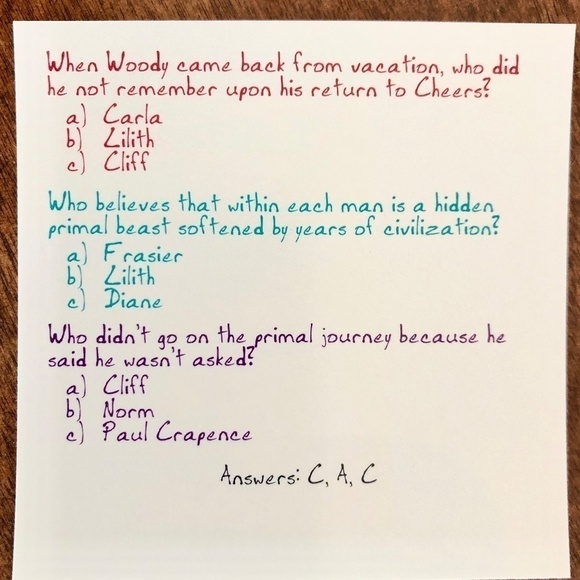 When Woody came back from vacation, who did
he not remember upon his return to Cheers?
a) Carla
b) Lilith
c) Cliff
Who believes that within each man is a hidden
primal beast softened by years of civilization?
a) Frasier
b) Lilith
c) Diane
Who didn't go on the primal journey because he
said he wasn't asked?
a) Cliff
b) Norm
c) Paul Crapence
Answers: C, A, C